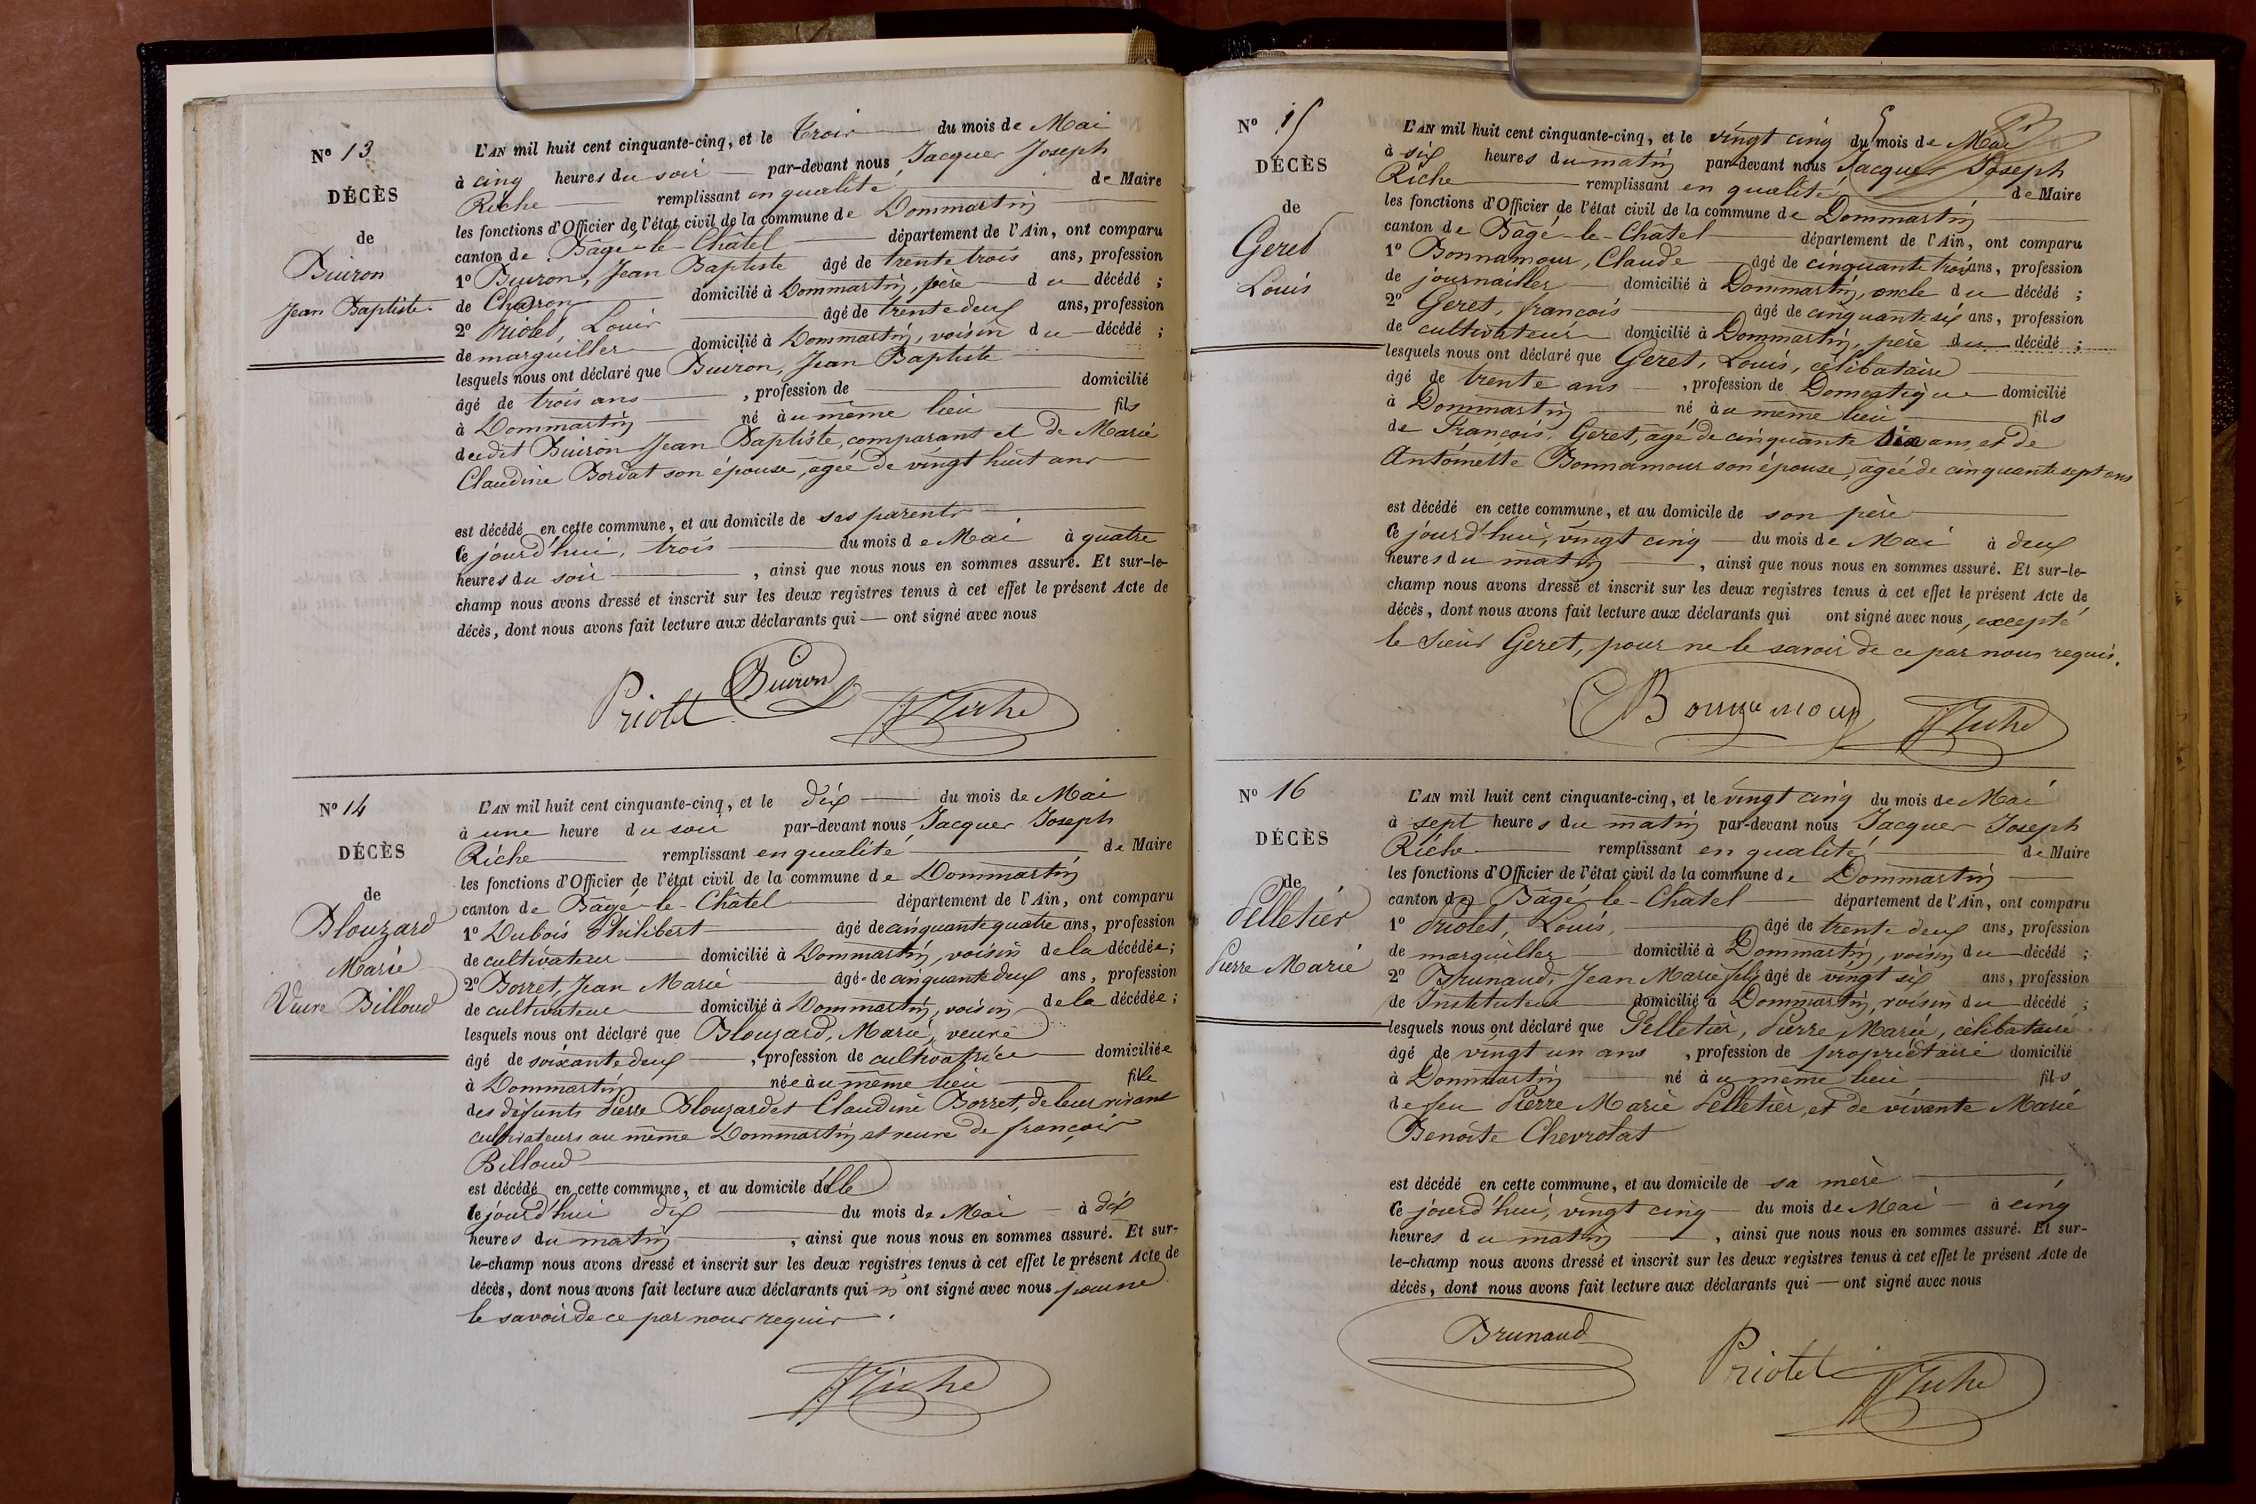 Nº 13
DÉCÈS
de
Buiron
Jean Baptiste.
L'AN mil huit cent cinquante-cinq, et le trois du mois de Mai
à cinq heures du soir par-devant nous Jacques Joseph
Riche remplissant en qualité de Maire
les fonctions d'Officier de l'état civil de la commune de Dommartin
canton de Bâgé-le-Châtel département de l'Ain, ont comparu
1º Buiron, Jean Baptiste âgé de trente trois ans, profession
de Charron domicilié à Dommartin, père du décédé ;
2º Priolet, Louis âgé de trente deux ans, profession
de marguiller domicilié à Dommartin, voisin du décédé ;
lesquels nous ont déclaré que Buiron, Jean Baptiste
âgé de trois ans , profession de domicilié
à Dommartin né au même lieu fils
dudit Buiron Jean Baptiste, comparant et de Marie
Claudine Bordat son épouse, âgée de vingt huit ans
est décédé en cette commune, et au domicile de ses parents
Ce jourd'hui, trois du mois de Mai à quatre
heures du soir , ainsi que nous nous en sommes assuré. Et sur-le-
champ nous avons dressé et inscrit sur les deux registres tenus à cet effet le présent Acte de
décès, dont nous avons fait lecture aux déclarants qui ont signé avec nous
Priolet Buiron JJ Riche
Nº 14
DÉCÈS
de
Blouzard
Marie
Veuve Billoud
L'AN mil huit cent cinquante-cinq, et le dix du mois de Mai
à une heure du soir par-devant nous Jacques Joseph
Riche remplissant en qualité de Maire
les fonctions d'Officier de l'état civil de la commune de Dommartin
canton de Bâgé-le-Châtel département de l'Ain, ont comparu
1º Dubois Philibert âgé de cinquante quatre ans, profession
de cultivateur domicilié à Dommartin, voisin de la décédée ;
2º Borret, Jean Marie âgé de cinquante deux ans, profession
de cultivateur domicilié à Dommartin, voisin de la décédée ;
lesquels nous ont déclaré que Blouzard, Marie, veuve
âgé de soixante deux , profession de cultivatrice domiciliée
à Dommartin née au même lieu fille
des défunts Pierre Blouzard et Claudine Borret, de leur vivant
cultivateurs au même Dommartin et veuve de françois
Billoud
est décédé en cette commune, et au domicile d'elle
le jourd'hui dix du mois de Mai à dix
heures du matin , ainsi que nous nous en sommes assuré. Et sur-
le-champ nous avons dressé et inscrit sur les deux registres tenus à cet effet le présent Acte de
décès, dont nous avons fait lecture aux déclarants qui n'ont signé avec nous pour ne
le savoir de ce par nous requis.
JJ Riche
Nº 15
DÉCÈS
de
Geret
Louis
L'AN mil huit cent cinquante-cinq, et le vingt cinq du mois de Mai
à six heures du matin par-devant nous Jacques Joseph
Riche remplissant en qualité de Maire
les fonctions d'Officier de l'état civil de la commune de Dommartin
canton de Bâgé-le-Châtel département de l'Ain, ont comparu
1º Bonnamour, Claude âgé de cinquante trois ans, profession
de journailler domicilié à Dommartin, oncle du décédé ;
2º Geret, françois âgé de cinquante six ans, profession
de cultivateur domicilié à Dommartin, père du décédé ;
lesquels nous ont déclaré que Geret, Louis, célibataire
âgé de trente ans , profession de Domestique domicilié
à Dommartin né au même lieu fils
de François Geret, âgé de cinquante six ans, et de
Antoinette Bonnamour son épouse, âgée de cinquante sept ans
est décédé en cette commune, et au domicile de son père
Ce jourd'hui, vingt cinq du mois de Mai à deux
heures du matin , ainsi que nous nous en sommes assuré. Et sur-le-
champ nous avons dressé et inscrit sur les deux registres tenus à cet effet le présent Acte de
décès, dont nous avons fait lecture aux déclarants qui ont signé avec nous, excepté
le sieur Geret, pour ne le savoir de ce par nous requis.
Bonnamour JJ Riche
Nº 16
DÉCÈS
de
Pelletier
Pierre Marie
L'AN mil huit cent cinquante-cinq, et le vingt cinq du mois de Mai
à sept heures du matin par-devant nous Jacques Joseph
Riche remplissant en qualité de Maire
les fonctions d'Officier de l'état civil de la commune de Dommartin
canton de Bâgé-le-Châtel département de l'Ain, ont comparu
1º Priolet, Louis, âgé de trente deux ans, profession
de marguiller domicilié à Dommartin, voisin du décédé ;
2º Brunaud, Jean Marie felix âgé de vingt six ans, profession
de Instituteur domicilié à Dommartin, voisin du décédé ;
lesquels nous ont déclaré que Pelletier, Pierre Marie, célibataire
âgé de vingt un ans , profession de propriétaire domicilié
à Dommartin né au même lieu fils
de feu Pierre Marie Pelletier, et de vivante Marie
Benoite Chevrolat
est décédé en cette commune, et au domicile de sa mère
Ce jourd'hui, vingt cinq du mois de Mai à cinq
heures du matin , ainsi que nous nous en sommes assuré. Et sur-
le-champ nous avons dressé et inscrit sur les deux registres tenus à cet effet le présent Acte de
décès, dont nous avons fait lecture aux déclarants qui ont signé avec nous
Brunaud Priolet JJ Riche